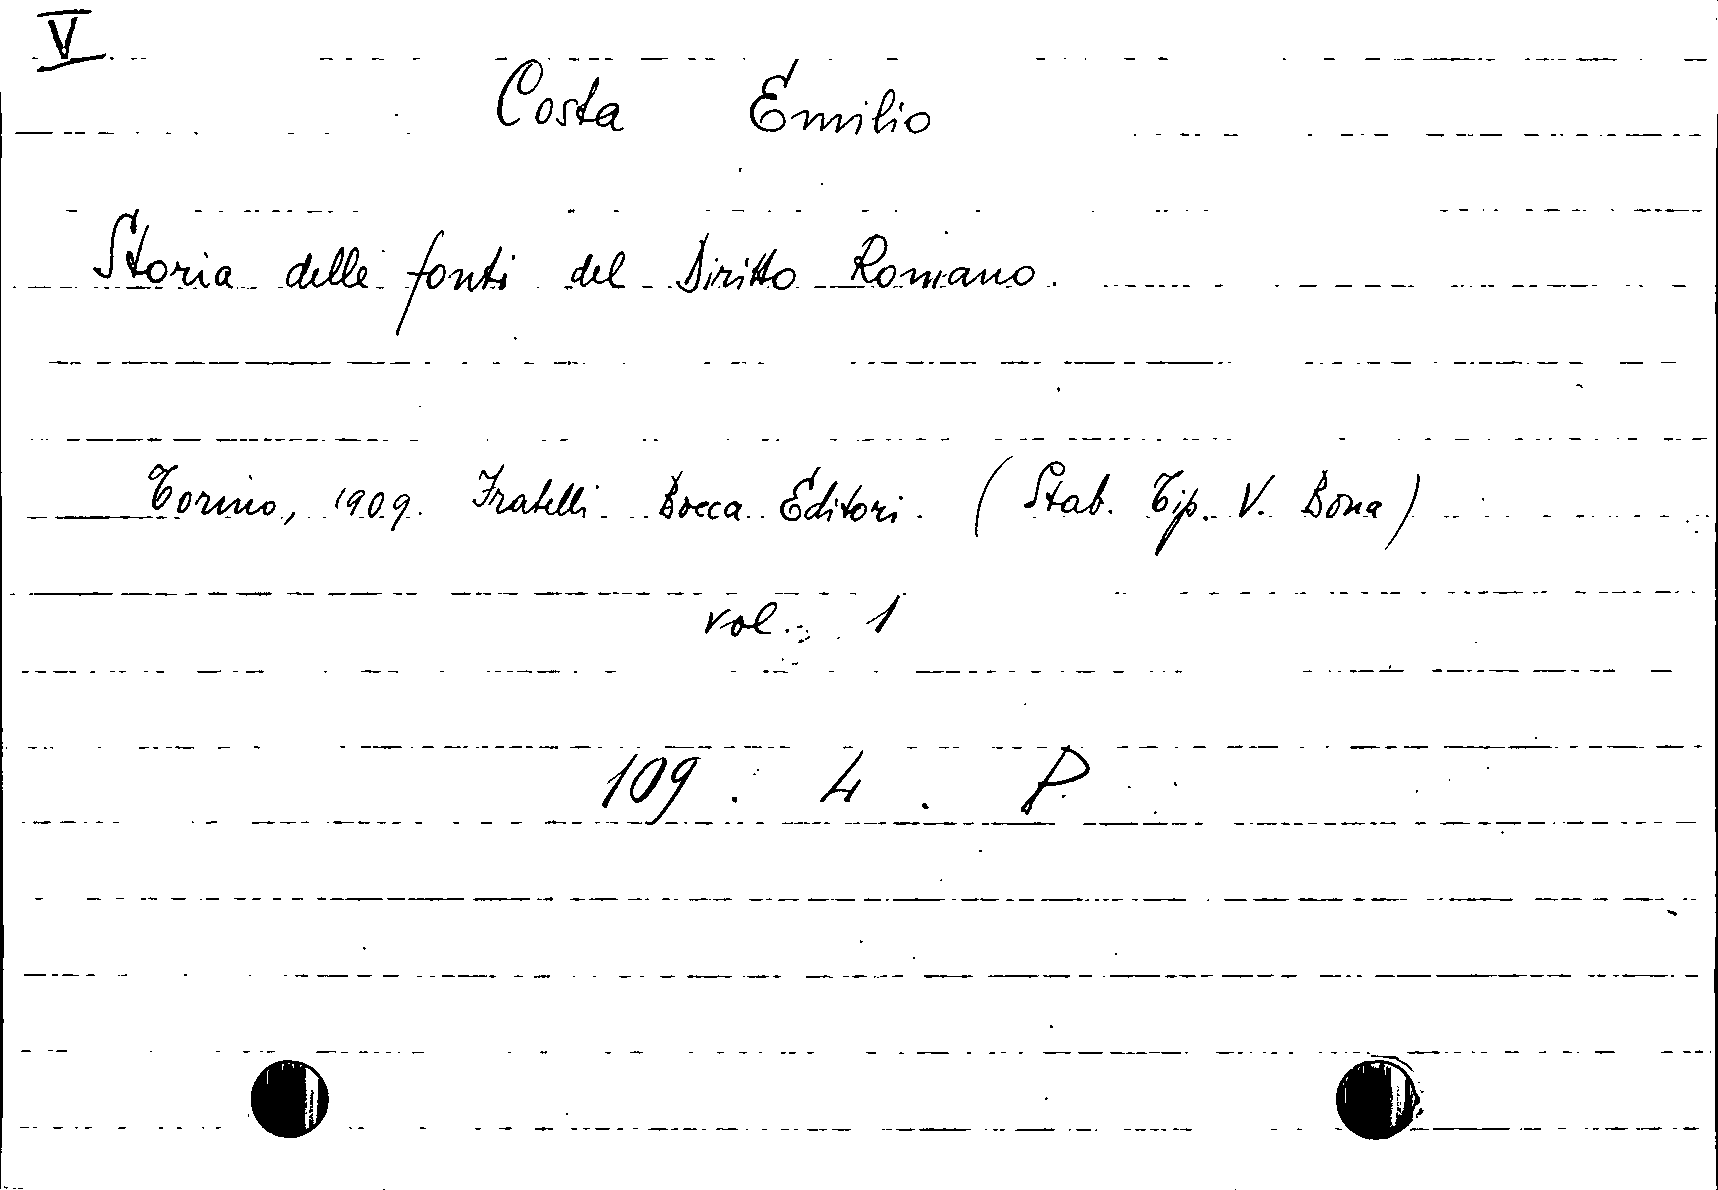 V
Costa Emilio
Storia delle fonti del Diritto Romano.
Torino, 1909. Fratelli Bocca Editori. (Stab. Tip. V. Bona)
vol. 1
109. 4. P.